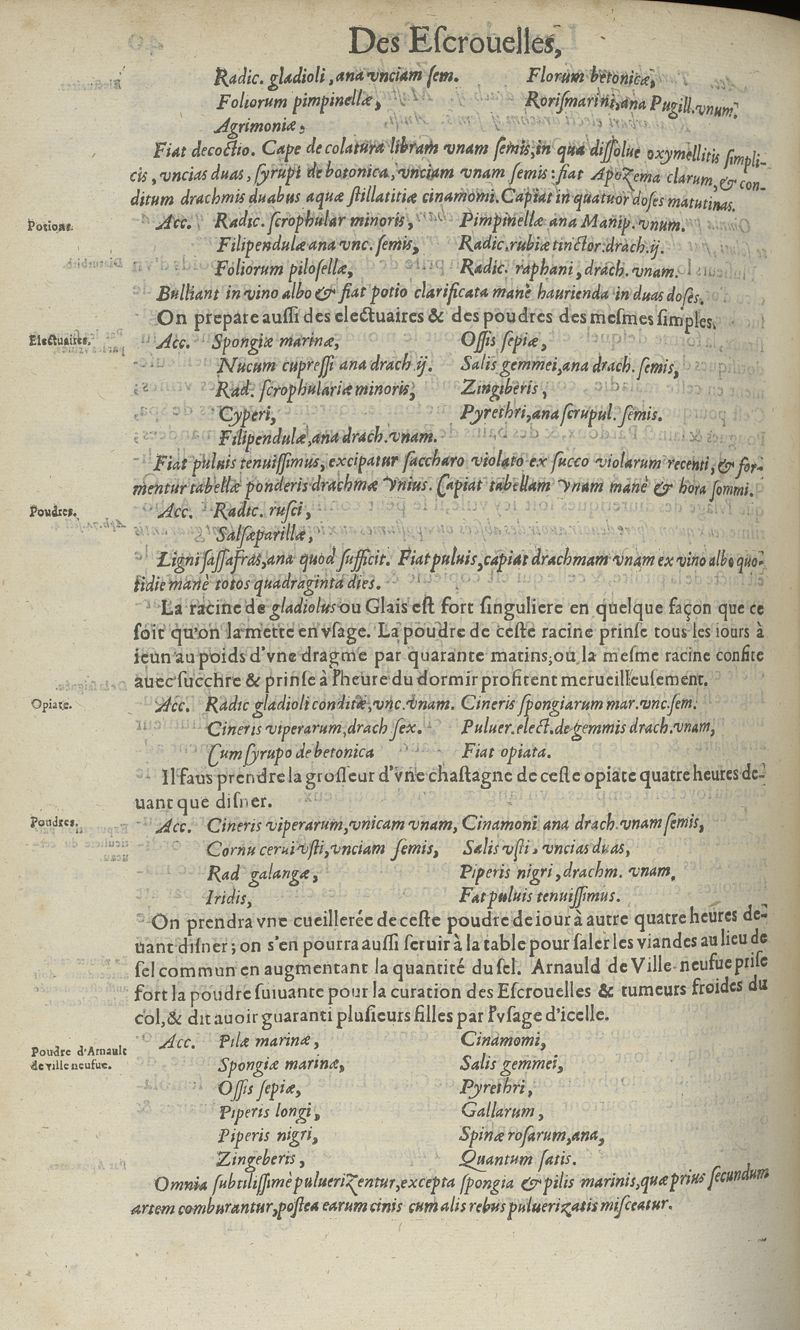 Des Eſcrouelles,
Radic. gladioli, ana vnciam ſem. Florum betonicæ,
Foliorum pimpinellæ, Roriſmarini, ana Pugill. vnum.
Agrimoniæ.
Fiat decoctio. Cape de colatura libram vnam ſemis, in qua diſſolue oxymellitis ſimpli-
cis, vncias duas, ſyrupi de botonica, vnciam vnam ſemis: fiat Apozema clarum, & con-
ditum drachmis duabus aquæ ſtillatitiæ cinamomi. Capiat in quatuor doſes matutinas.
Potions.
Acc. Radic. ſcrophular minoris, Pimpinellæ ana Manip. vnum.
Filipendulæ ana vnc. ſemis, Radic. rubiæ tinctor. drach. ij.
Foliorum piloſellæ, Radic. raphani, drach. vnam.
Bulliant in vino albo & fiat potio clarificata manè haurienda in duas doſes.
On prepare auſſi des electuaires & des poudres des meſmes ſimples.
Electuaires.
Acc. Spongiæ marinæ, Oſſis ſepiæ,
Nucum cupreſſi ana drach. ij. Salis gemmei, ana drach. ſemis,
Rad. ſcrophulariæ minoris, Zingiberis,
Cyperi, Pyrethri, ana ſcrupul. ſemis.
Filipendulæ, ana drach. vnam.
Fiat puluis tenuiſſimus, excipatur ſaccharo violato ex ſucco violarum recenti, & for-
mentur tabellæ ponderis drachmæ vnius. Capiat tabellam vnam manè & hora ſomni.
Poudres.
Acc. Radic. ruſci,
Salſæparillæ,
Ligni ſaſſafras, ana quod ſufficit. Fiat puluis, capiat drachmam vnam ex vino albo quo-
tidie manè totos quadraginta dies.
La racine de gladiolus ou Glais eſt fort ſinguliere en quelque façon que ce
ſoit qu'on la mette en vſage. La poudre de ceſte racine prinſe tous les iours à
ieun au poids d'vne dragme par quarante matins, ou la meſme racine confite
auec ſucchre & prinſe à l'heure du dormir profitent merueilleuſement.
Opiate.
Acc. Radic gladioli conditæ, vnc. vnam. Cineris ſpongiarum mar. vnc. ſem.
Cineris viperarum, drach ſex. Puluer. elect. de gemmis drach. vnam,
Cum ſyrupo de betonica Fiat opiata.
Il faus prendre la groſſeur d'vne chaſtagne de ceſte opiate quatre heures de-
uant que diſner.
Poudres.
Acc. Cineris viperarum, vnicam vnam, Cinamoni ana drach. vnam ſemis,
Cornu cerui vſti, vnciam ſemis, Salis vſti, vncias duas,
Rad galangæ, Piperis nigri, drachm. vnam,
Iridis, Fat puluis tenuiſſimus.
On prendra vne cueillerée de ceſte poudre de iour à autre quatre heures de-
uant diſner; on s'en pourra auſſi ſeruir à la table pour ſaler les viandes au lieu de
ſel commun en augmentant la quantité du ſel. Arnauld de Ville-neufue priſe
fort la poudre ſuiuante pour la curation des Eſcrouelles & tumeurs froides du
col, & dit auoir guaranti pluſieurs filles par l'vſage d'icelle.
Poudre d'Arnault
de ville neufue.
Acc. Pilæ marinæ, Cinamomi,
Spongiæ marinæ, Salis gemmei,
Oſſis ſepiæ, Pyrethri,
Piperis longi, Gallarum,
Piperis nigri, Spinæ roſarum, ana,
Zingeberis, Quantum ſatis.
Omnia ſubtiliſſimè pulueriZentur, excepta ſpongia & pilis marinis, quæ prius ſecundum
artem comburantur, poſtea earum cinis cum alis rebus pulueriZatis miſceatur.